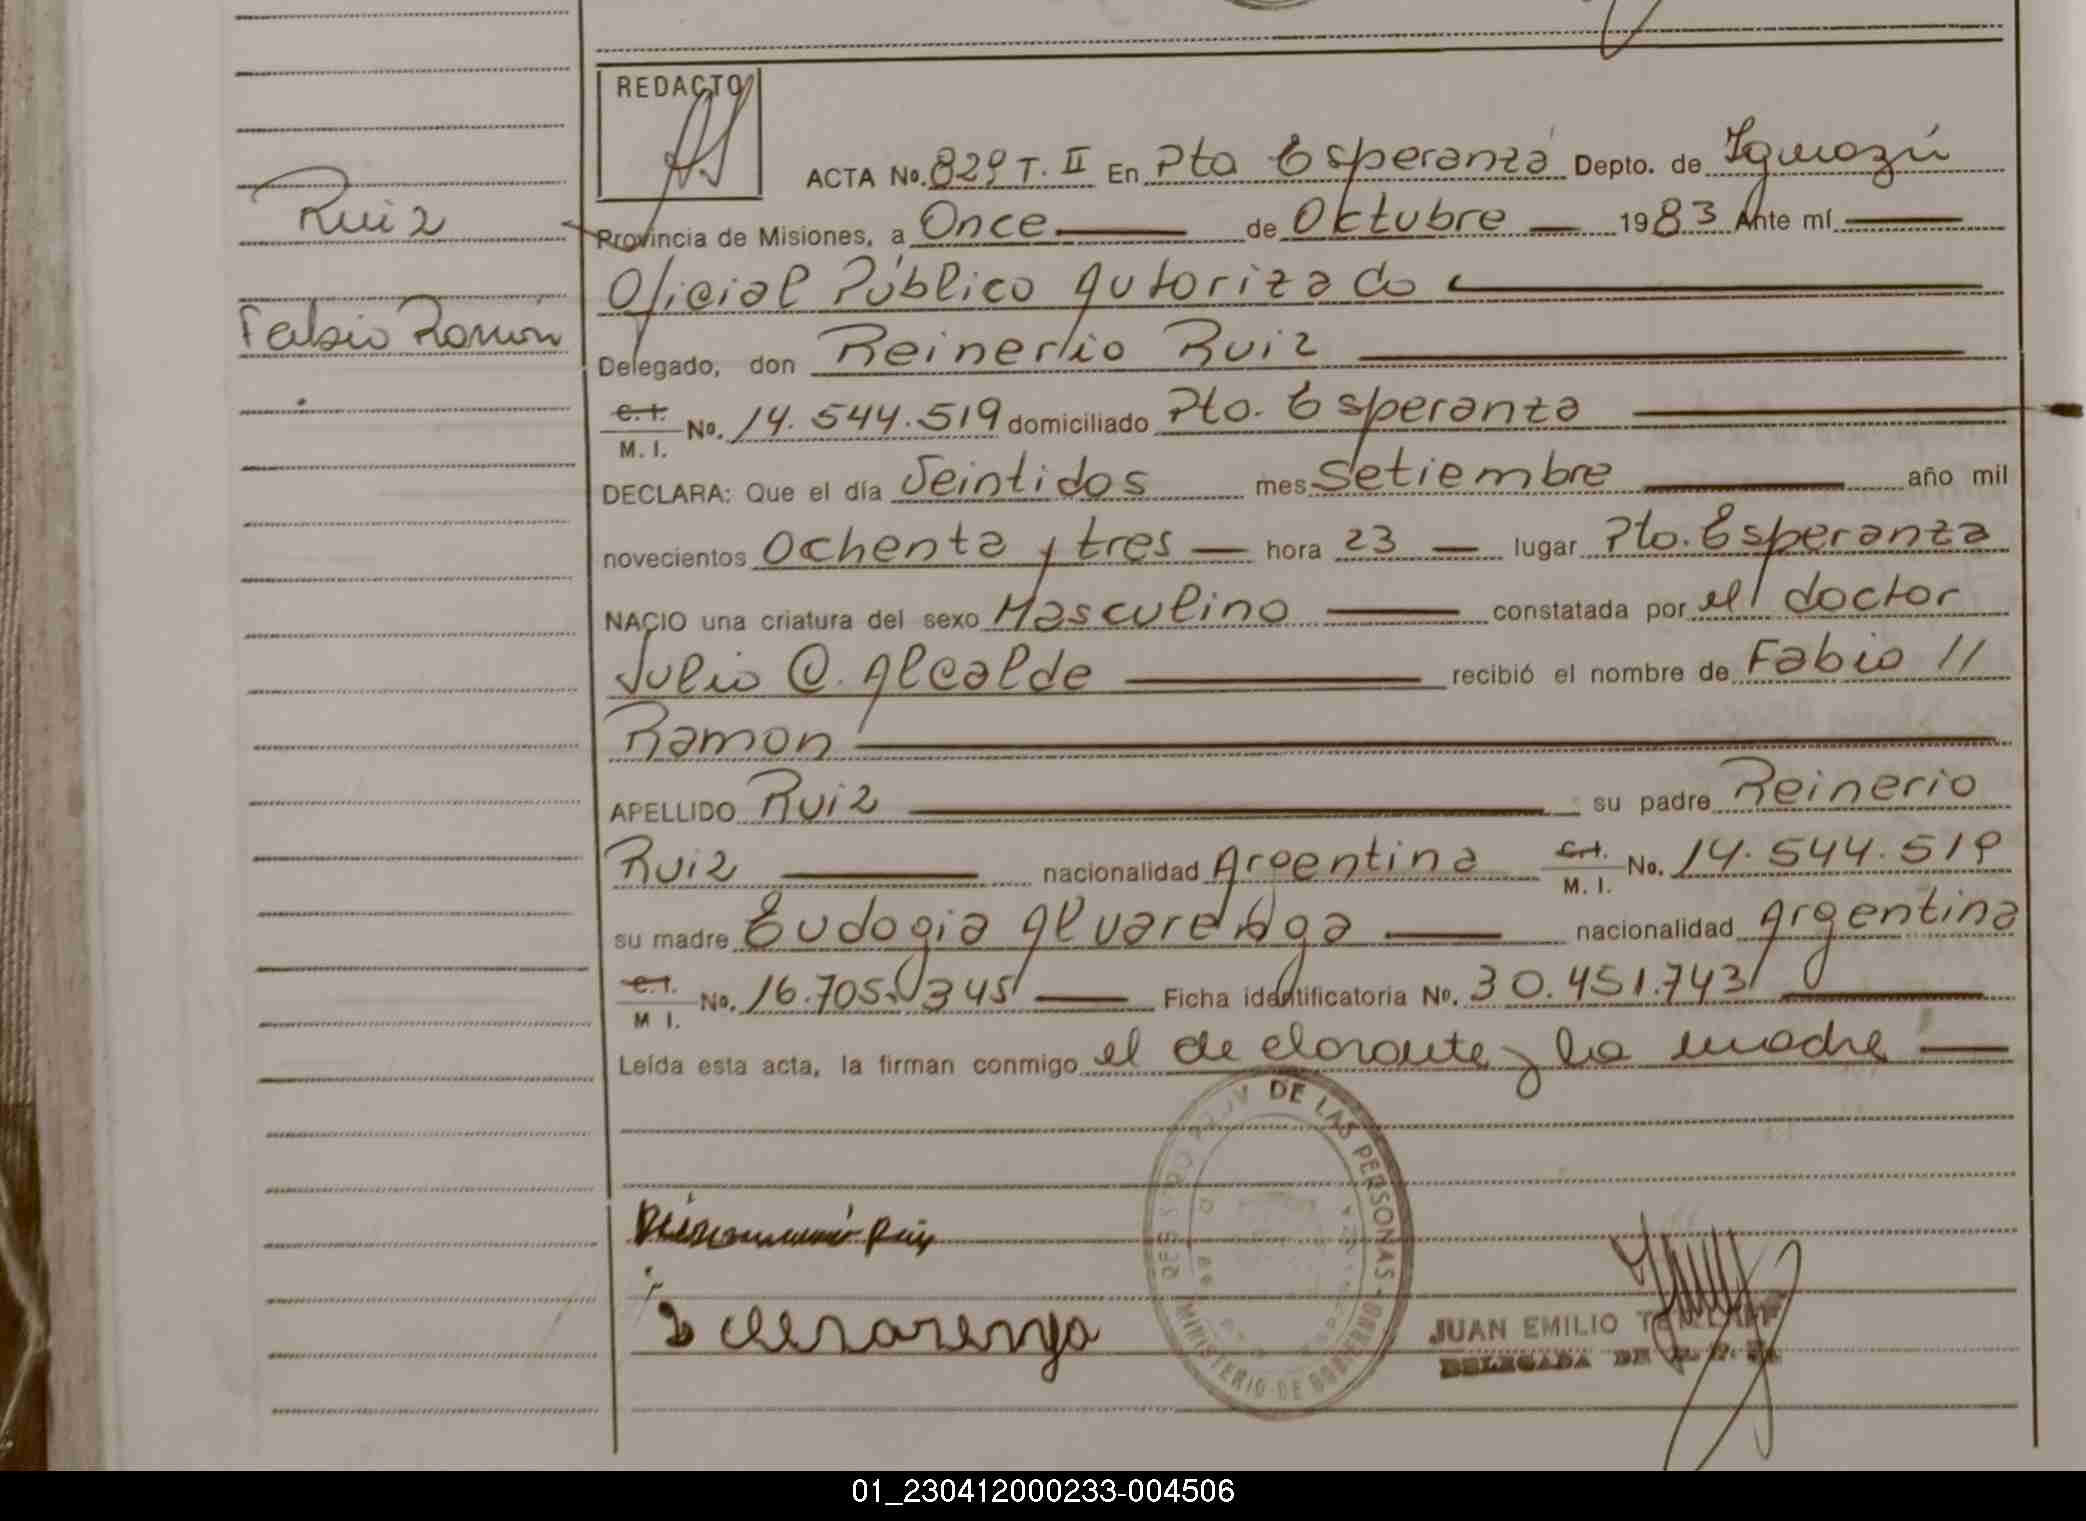 REDACTO
ACTA No. 829 T. II En Pto Esperanza Depto. de Iguazú
Ruiz
Provincia de Misiones, a Once de Octubre 1983 Ante mí
Oficial Público Autorizado
Fabio Ramón
Delegado, don Reinerio Ruiz
C. I. M. I. No. 14.544.519 domiciliado Pto. Esperanza
DECLARA: Que el día Veintidos mes Setiembre año mil
novecientos Ochenta y tres hora 23 lugar Pto. Esperanza
NACIO una criatura del sexo Masculino constatada por el doctor
Julio C. Alcalde recibió el nombre de Fabio //
Ramon
APELLIDO Ruiz su padre Reinerio
Ruiz nacionalidad Argentina C. I. M. I. No. 14.544.519
su madre Eudogia Alvarenga nacionalidad Argentina
C. I. M I. No. 16.705.345 Ficha identificatoria No. 30.451.743
Leída esta acta, la firman conmigo el declarante y la madre
DE LAS PERSONAS - MINISTERIO DE GOBIERNO
Ruiz
JUAN EMILIO
DELEGADA DE
01_230412000233-004506